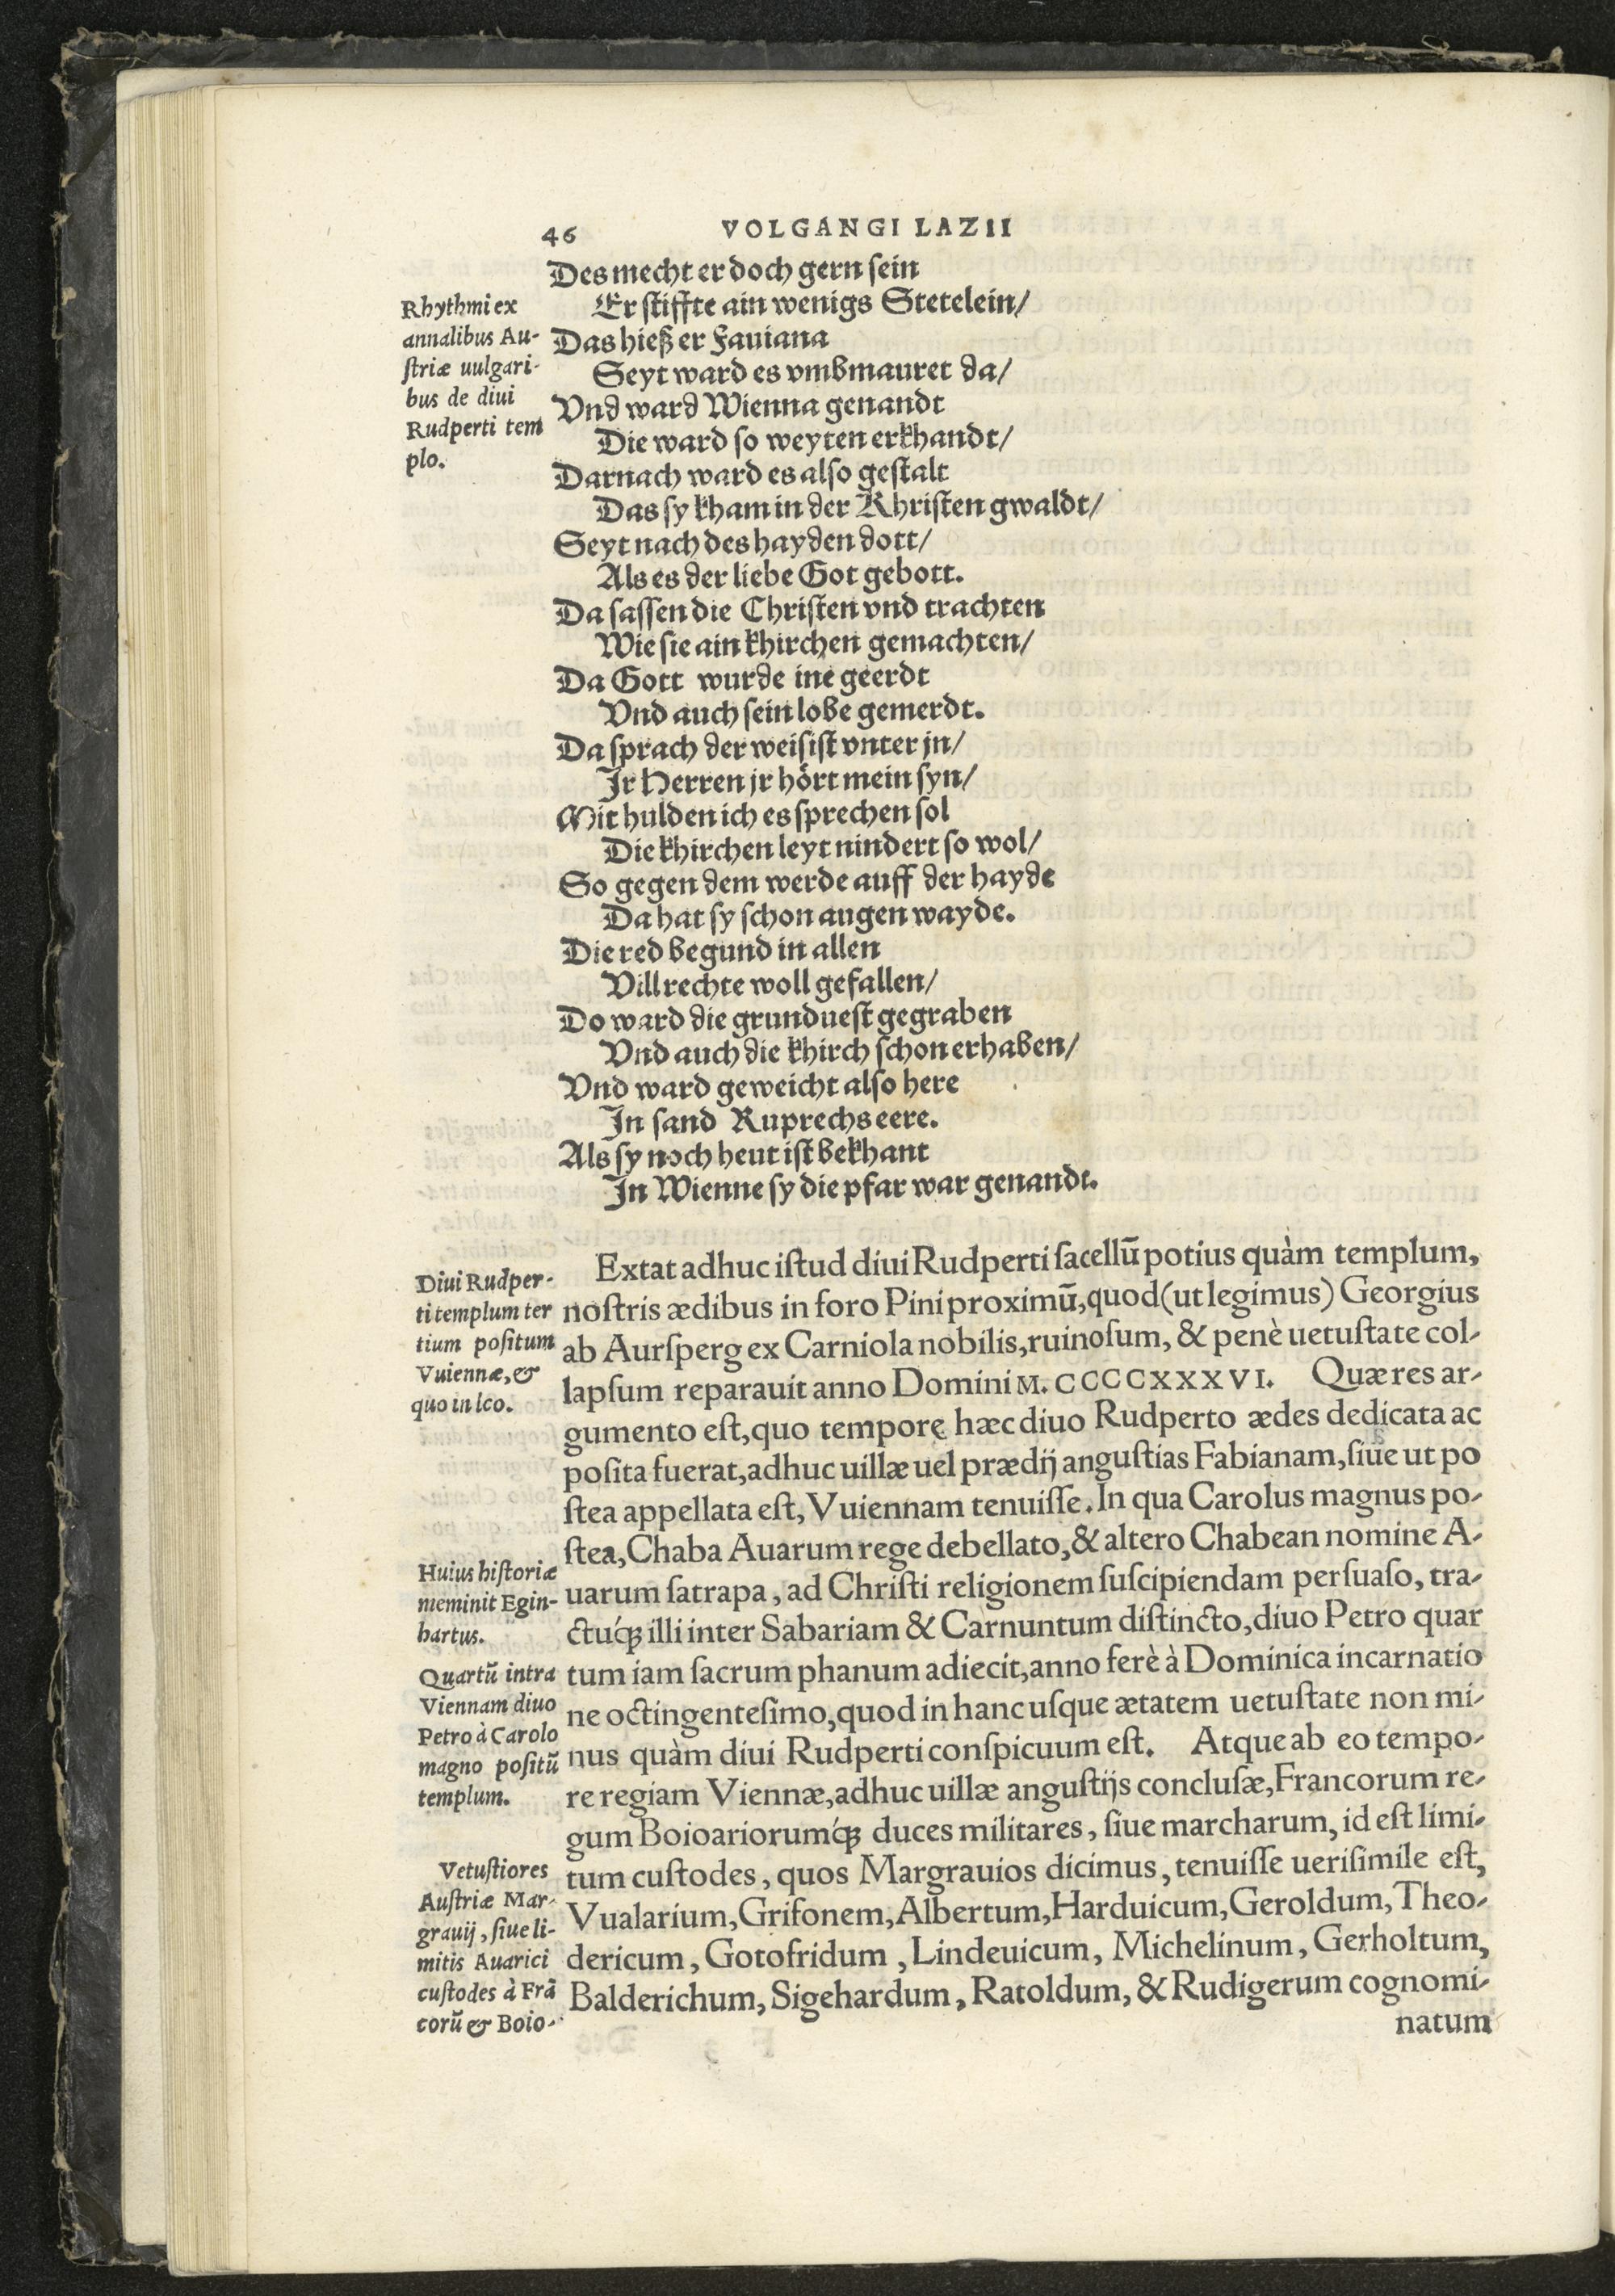 46 VOLGANGI LAZII
Des mecht er doch gern sein
Er stiffte ain wenigs Stetelein/
Das hieß er Fauiana
Seyt ward es vmbmauret da/
Vnd ward Wienna genandt
Die ward so weyten erkhandt/
Darnach ward es also gestalt
Das sy kham in der Khristen gwaldt/
Seyt nach des hayden dott/
Als es der liebe Got gebott.
Da sassen die Christen vnd trachten
Wie sie ain khirchen gemachten/
Da Gott wurde ine geerdt
Vnd auch sein lobe gemerdt.
Da sprach der weisist vnter jn/
Jr Herren jr hört mein syn/
Mit hulden ich es sprechen sol
Die khirchen leyt nindert so wol/
So gegen dem werde auff der hayde
Da hat sy schon augen wayde.
Die red begund in allen
Vill rechte woll gefallen/
Do ward die grunduest gegraben
Vnd auch die khirch schon erhaben/
Vnd ward geweicht also here
In sand Ruprechs eere.
Als sy noch heut ist bekhant
In Wienne sy die pfar war genandt.
Rhythmi ex
annalibus Au-
striæ uulgari-
bus de diui
Rudperti tem
plo.
Extat adhuc istud diui Rudperti sacellū potius quàm templum,
nostris ædibus in foro Pini proximū, quod (ut legimus) Georgius
ab Aursperg ex Carniola nobilis, ruinosum, & penè uetustate col-
lapsum reparauit anno Domini M. CCCCXXXVI. Quæ res ar-
gumento est, quo tempore hæc diuo Rudperto ædes dedicata ac
posita fuerat, adhuc uillæ uel prædij angustias Fabianam, siue ut po
stea appellata est, Vuiennam tenuisse. In qua Carolus magnus po-
stea, Chaba Auarum rege debellato, & altero Chabean nomine A-
uarum satrapa, ad Christi religionem suscipiendam persuaso, tra-
ctúq; illi inter Sabariam & Carnuntum distincto, diuo Petro quar
tum iam sacrum phanum adiecit, anno ferè à Dominica incarnatio
ne octingentesimo, quod in hanc usque ætatem uetustate non mi-
nus quàm diui Rudperti conspicuum est. Atque ab eo tempo-
re regiam Viennæ, adhuc uillæ angustijs conclusæ, Francorum re-
gum Boioariorumq́; duces militares, siue marcharum, id est limi-
tum custodes, quos Margrauios dicimus, tenuisse uerisimile est,
Vualarium, Grifonem, Albertum, Harduicum, Geroldum, Theo-
dericum, Gotofridum, Lindeuicum, Michelinum, Gerholtum,
Balderichum, Sigehardum, Ratoldum, & Rudigerum cognomi-
natum
Diui Rudper-
ti templum ter
tium positum
Vuiennæ, &
quo in lco.
Huius historiæ
meminit Egin-
hartus.
Quartū intra
Viennam diuo
Petro à Carolo
magno positū
templum.
Vetustiores
Austriæ Mar-
grauij, siue li-
mitis Auarici
custodes à Frā
corū & Boio-